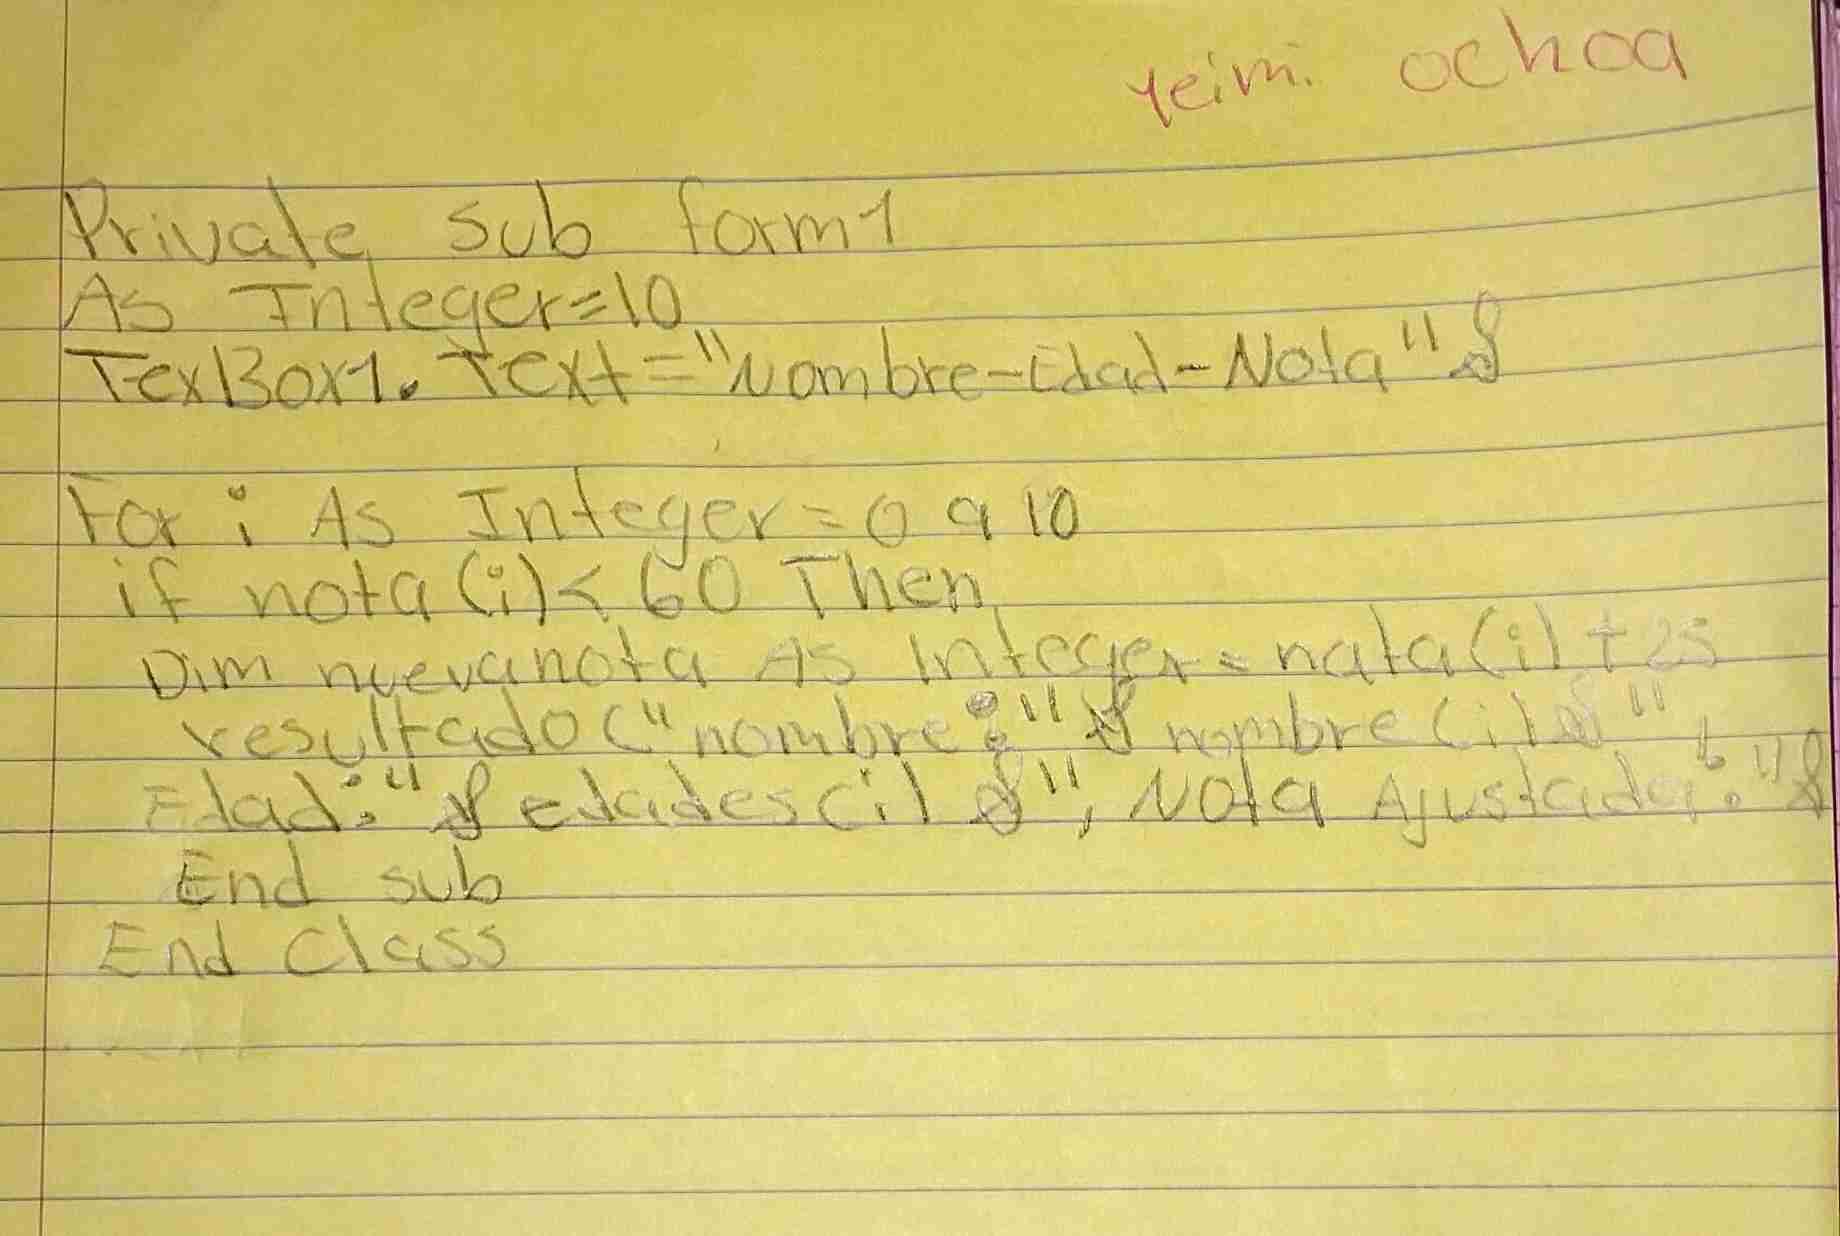 Yeimi Ochoa
Private Sub form1
As Integer=10
TexBox1. Text="Nombre-Edad-Nota" &
For i As Integer=0 a 10
if nota(i)< 60 Then
Dim nuevanota As Integer=nata(i)+25
resultado("nombre:" & nombre(i) & "
Edad:" & edades(i) & ", Nota Ajustada:" &
End sub
End Class